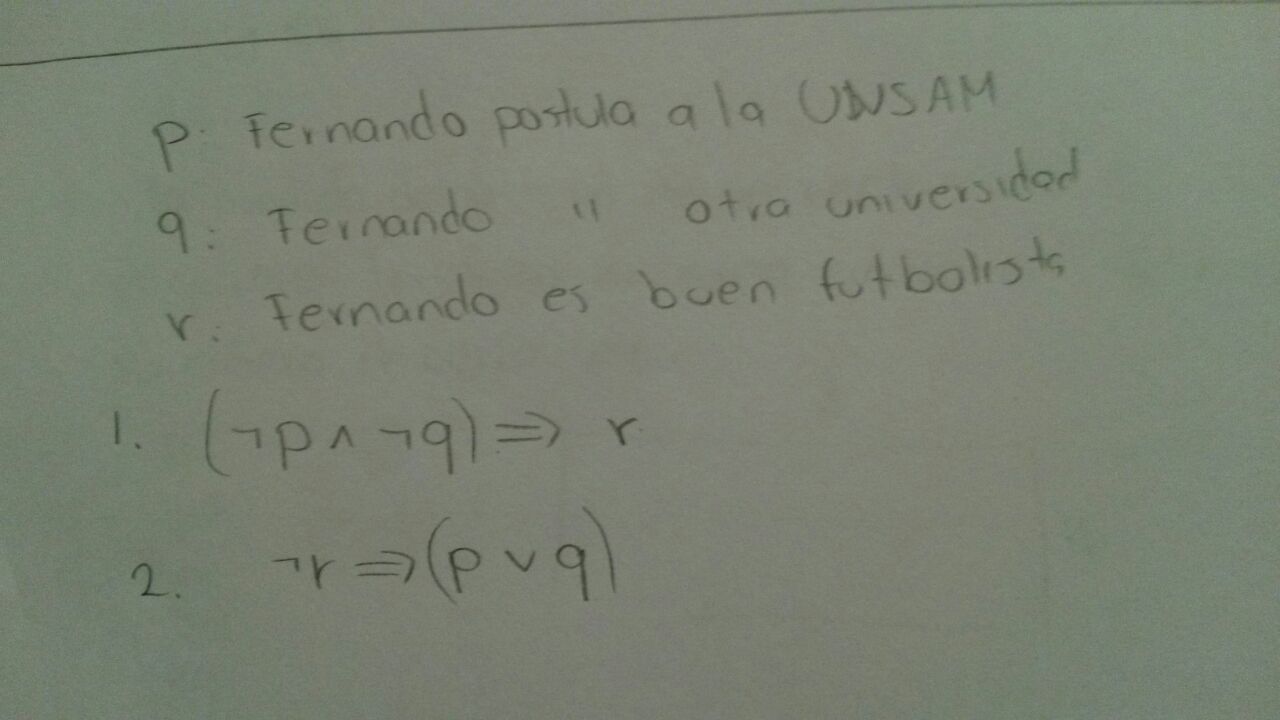 p: Fernando postula a la UNSAM
q: Fernando " otra universidad
r: Fernando es buen futbolista
1. (¬p ∧ ¬q) ⇒ r
2. ¬r ⇒ (p ∨ q)